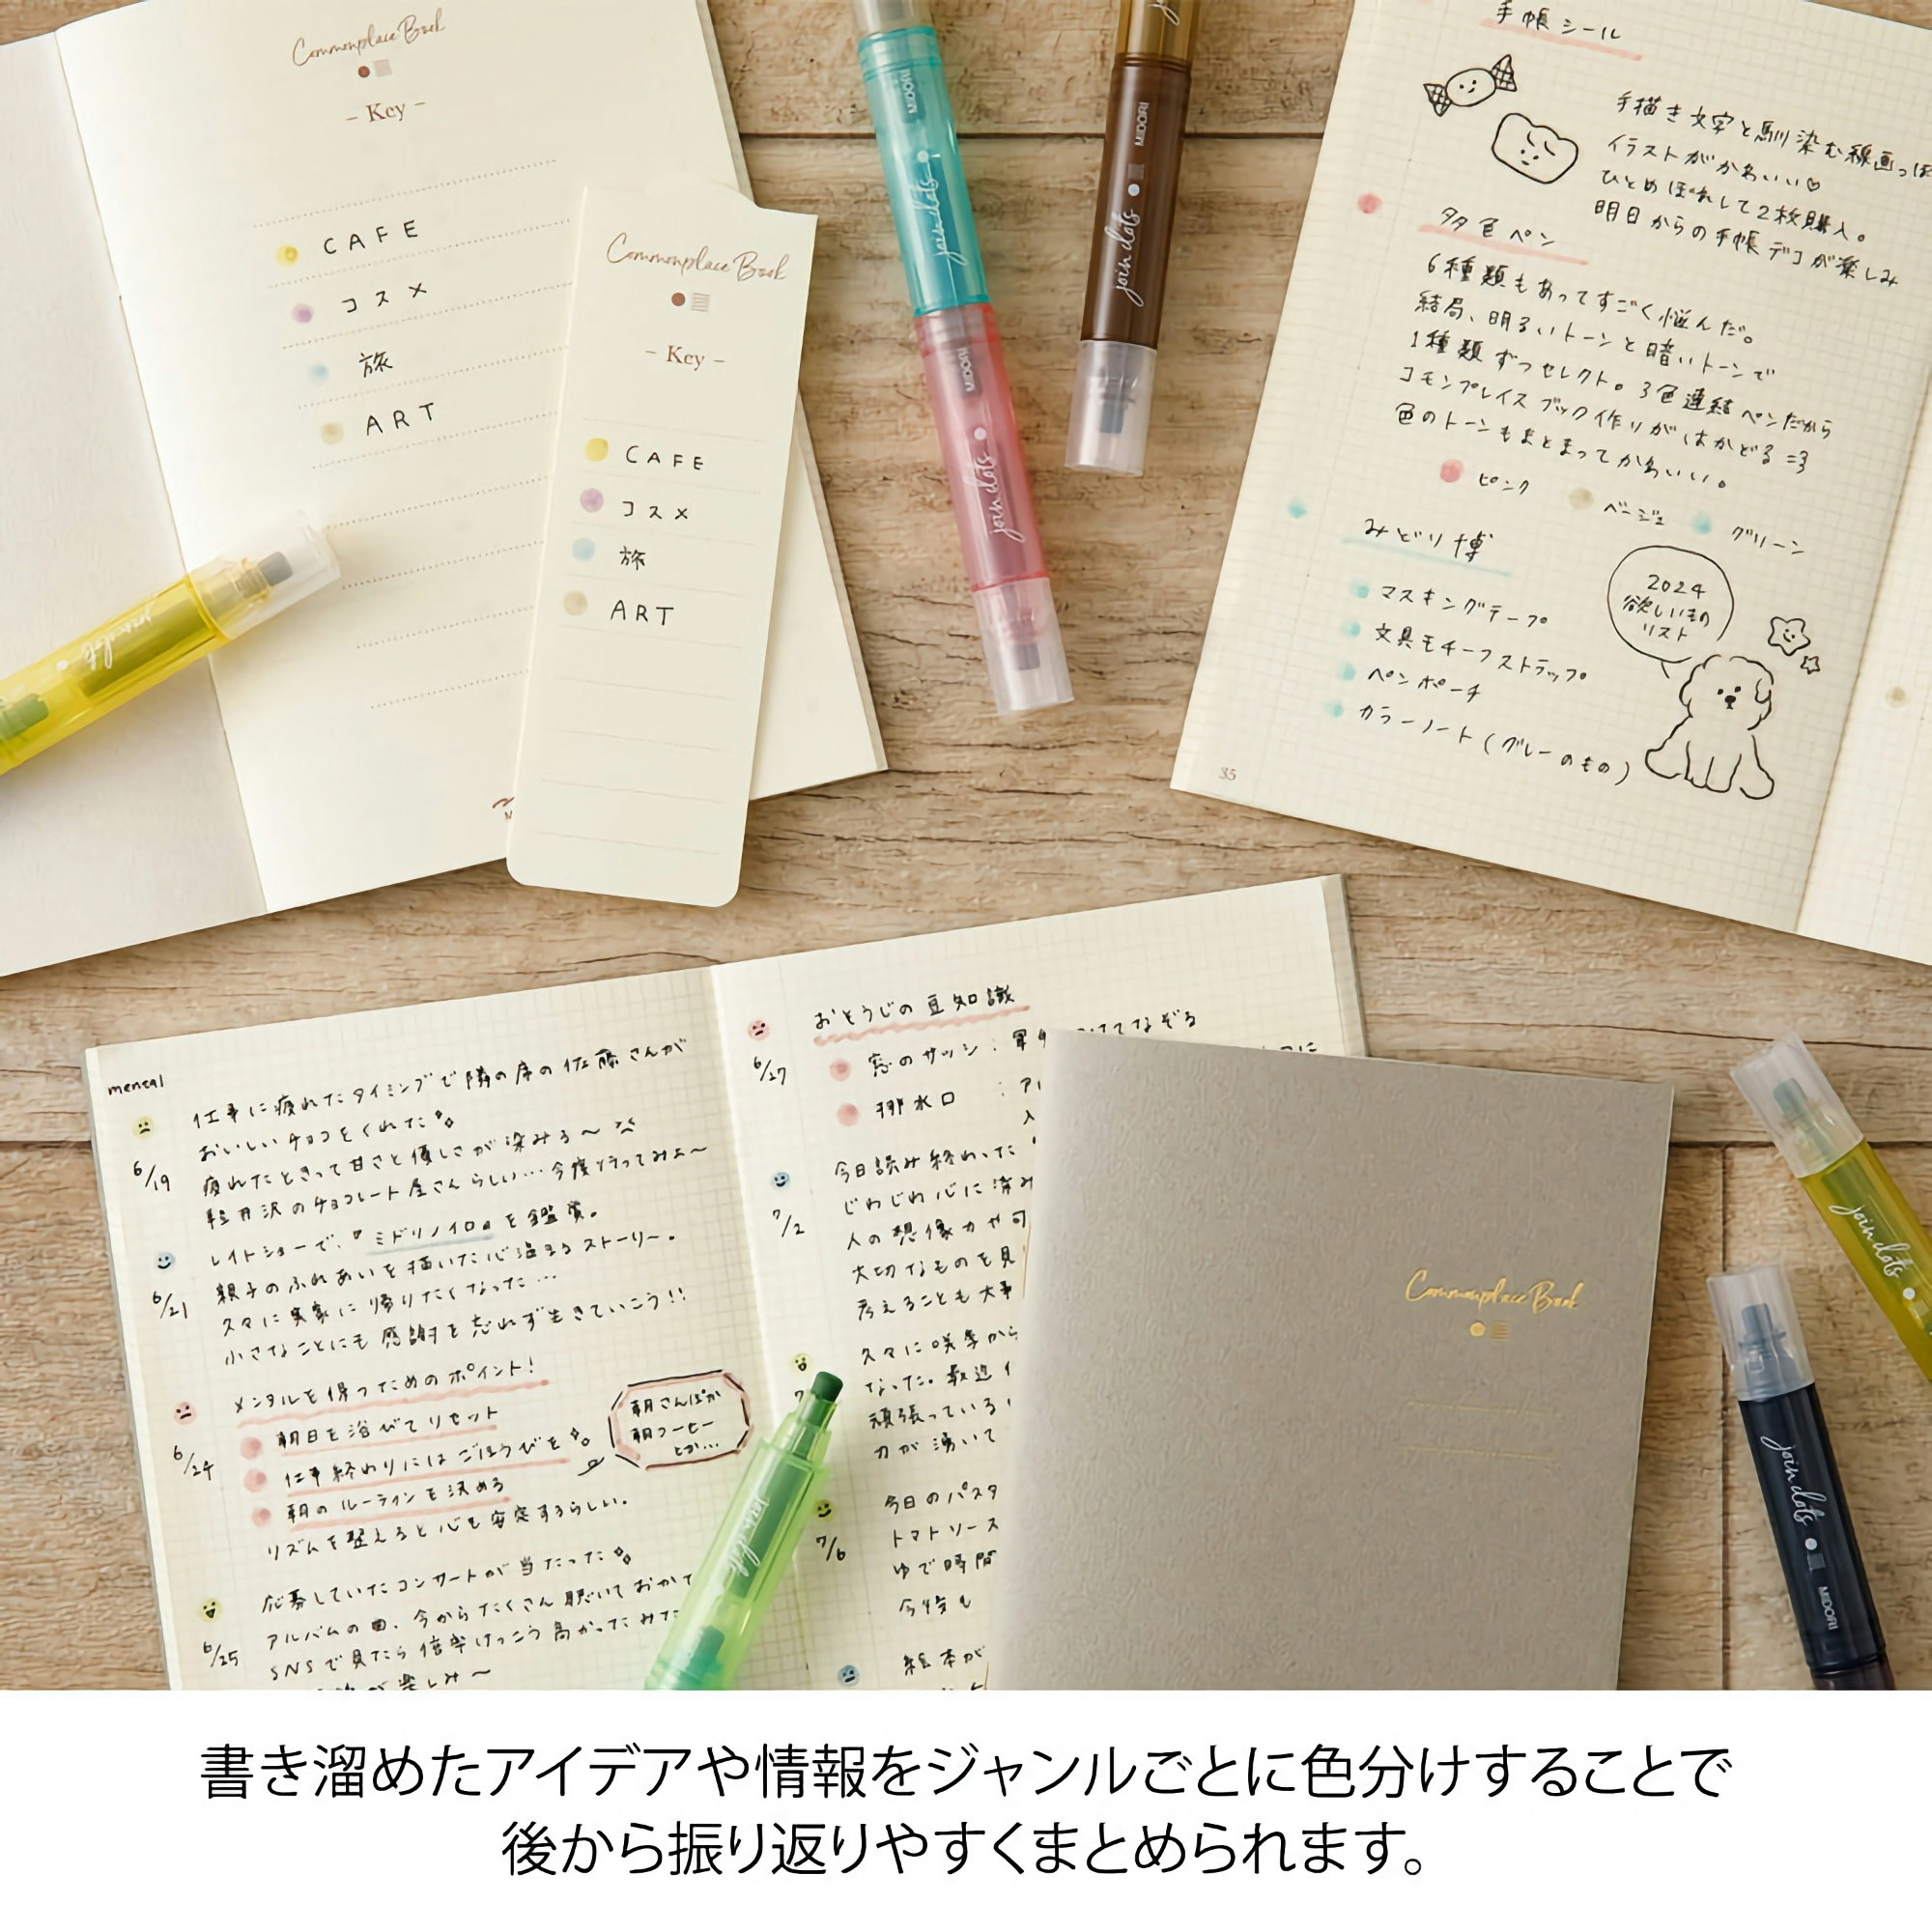 Commonplace Book
– Key –
CAFE
コスメ
旅
ART
Commonplace Book
– Key –
CAFE
コスメ
旅
ART
MIDORI
join dots
MIDORI
join dots
MIDORI
join dots
手帳シール
手描き文字と馴染む線画っぽ
イラストがかわいい♡
ひとめぼれして2枚購入。
明日からの手帳デコが楽しみ
多色ペン
6種類もあってすごく悩んだ。
結局、明るいトーンと暗いトーンで
1種類ずつセレクト。3色連結ペンだから
コモンプレイスブック作りがはかどる
色のトーンもまとまってかわいい。
ピンク
ベージュ
グリーン
みどり博
マスキングテープ
文具モチーフストラップ
ペンポーチ
カラーノート(グレーのもの)
2024
欲しいもの
リスト
35
mental
6/19
仕事に疲れたタイミングで隣の席の佐藤さんが
おいしいチョコをくれた
疲れたときって甘さと優しさが染みる〜
軽井沢のチョコレート屋さんらしい…今度行ってみよ〜
6/21
レイトショーで、『ミドリノイロ』を鑑賞。
親子のふれあいを描いた心温まるストーリー。
久々に実家に帰りたくなった…
小さなことにも感謝を忘れず生きていこう!!
6/24
メンタルを保つためのポイント!
朝日を浴びてリセット
仕事終わりにはごほうびを
朝のルーティンを決める
リズムを整えると心も安定するらしい。
朝さんぽか
朝コーヒー
とか…
6/25
応募していたコンサートが当たった
アルバムの曲、今からたくさん聴いておかて
SNSで見たら倍率けっこう高かったみた
楽しみ〜
6/27
おそうじの豆知識
窓のサッシ:
てなぞる
排水口 :
7/2
今日読み終わった
じわじわ心に染み
人の想像力や可
大切なものを見
考えることも大事
久々に咲季から
なった。最近
頑張っている
力が湧いて
7/6
今日のパスタ
トマトソース
ゆで時間
今後も
絵本が
join dots
Commonplace Book
join dots
join dots
MIDORI
書き溜めたアイデアや情報をジャンルごとに色分けすることで
後から振り返りやすくまとめられます。